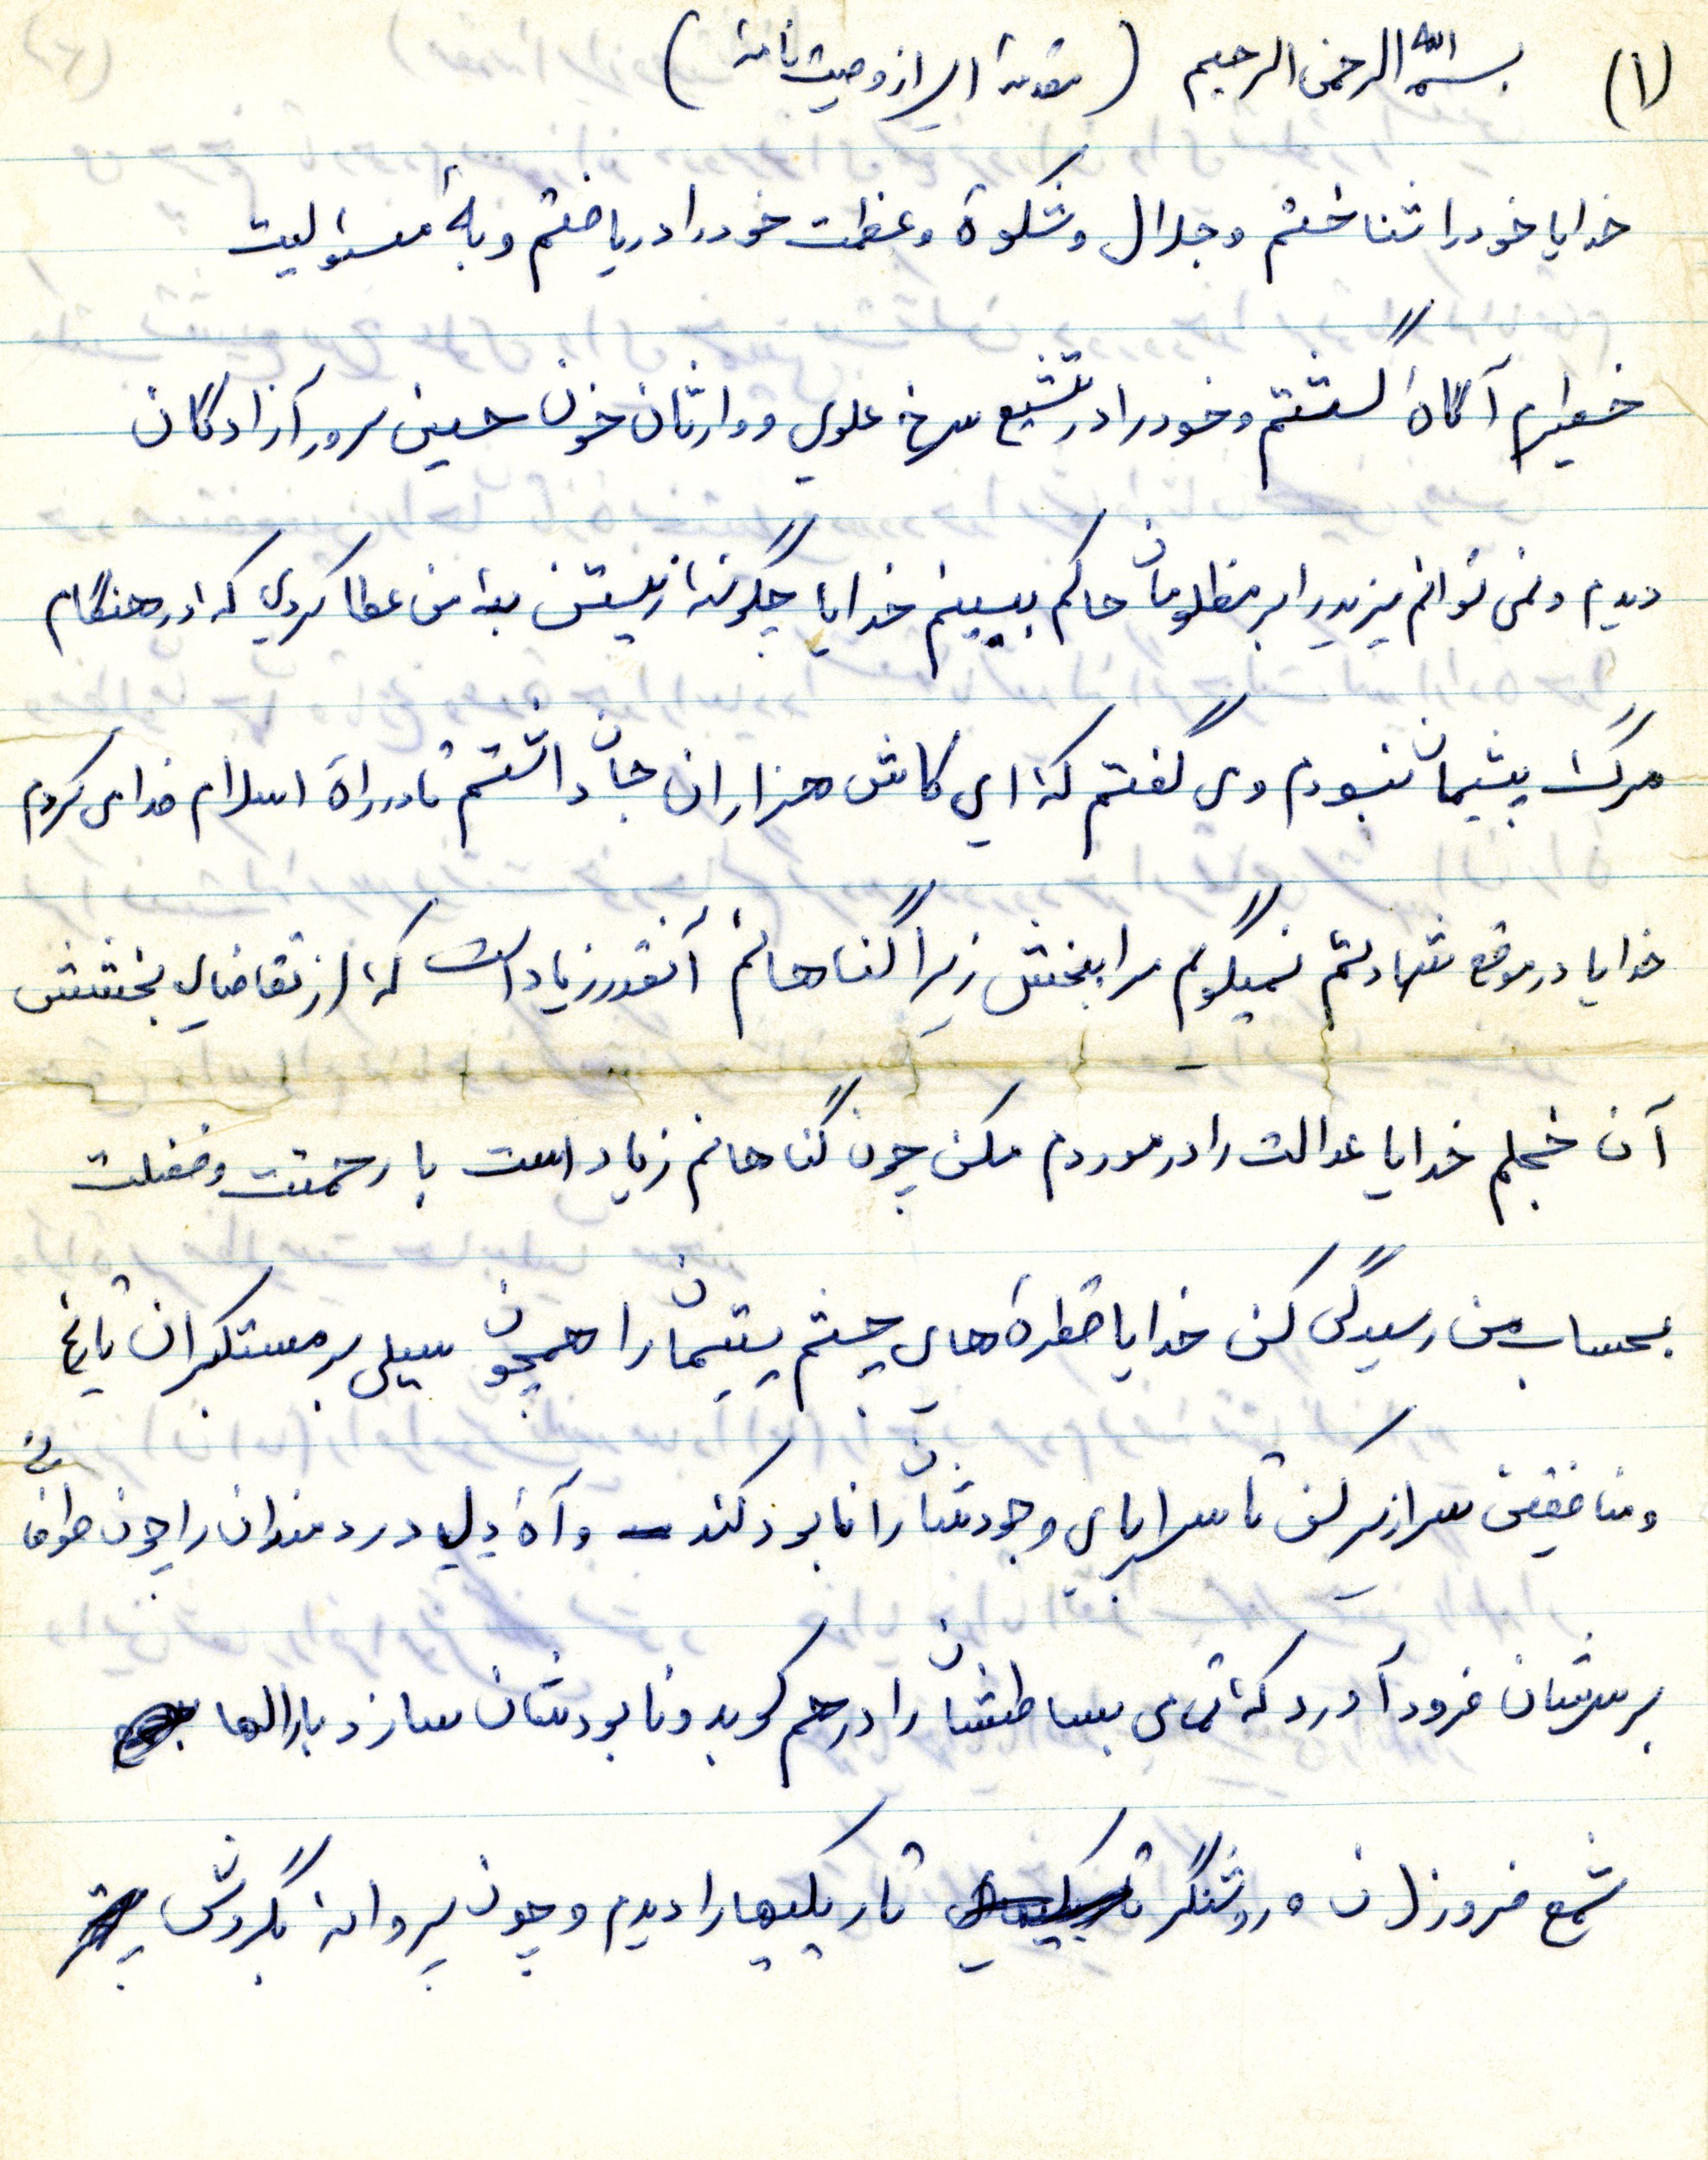 (۱) بسم الله الرحمن الرحیم (مقدمه ای از وصیت نامه)
خدایا خود را شناختم و جلال و شکوه و عظمت خود را دریافتم و به مسئولیت
خطیرم آگاه گشتم و خود را در تشیع سرخ علوی و وارثان خون حسین سرور آزادگان
دیدم و نمی توانم یزید را بر مظلومان حاکم ببینم خدایا چگونه زیستن به من عطا کردی که در هنگام
مرگ پشیمان نبودم و می گفتم که ای کاش هزاران جان داشتم تا در راه اسلام فدا می کردم
خدایا در موقع شهادتم نمیگویم مرا ببخش زیرا گناهانم آنقدر زیاد است که از تقاضای بخشش
آن خجلم خدایا عدالت را در موردم مکن چون گناهانم زیاد است با رحمتت و فضلت
بحساب من رسیدگی کن خدایا قطره های چشم یتیمان را همچون سیلی بر مستکبران یاغی
و منافقین سرازیر کن تا سراپای وجودشان را نابود کند و آه دل دردمندان را چون طوفانی
بر سرشان فرود آورد که تمامی بساطشان را درهم کوبد و نابودشان سازد بارالها
شمع فروزان و روشنگر تاریکیها را دیدم و چون پروانه بگردش